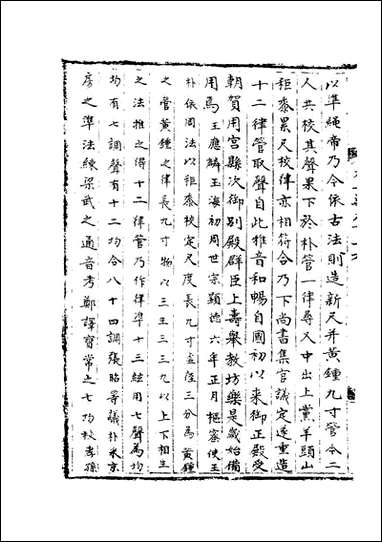 以準繩帝乃令依古法則造新尺并黄鍾九寸管令二
人共校其聲果下於朴管一律尋又中出上黨羊頭山
秬黍累尺校律亦相符合乃下尚書集官議定遂重造
十二律管取聲自此推音和暢自國初以來御正殿受
朝賀用宫縣次御别殿群臣上壽舉教坊樂是歲始備
用焉 王應麟玉海初周世宗顯徳六年正月樞宻使王
朴依周法以秬黍校定尺度長九寸虚徑三分為黄鍾
之管黄鍾之律長九寸物以三王三三九以上下相生
之法推之得十二律管乃作律準十三絃用七聲為均
均有七調聲有十二均合八十四調張昭等議朴朱京
房之準法練梁武之通音考鄭譯寳常之七均校孝孫